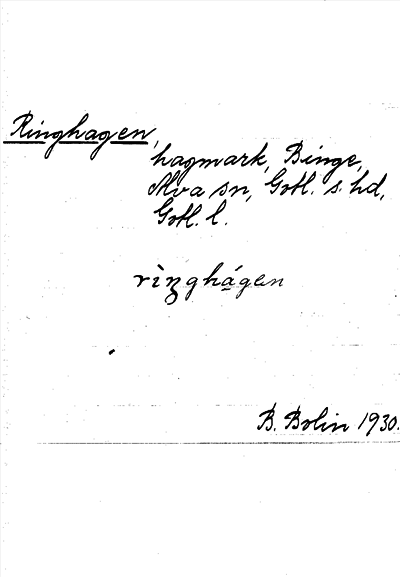 Ringhagen,
hagmark, Binge,
Alva sn, Gotl. s. hd,
Gotl. l.
rìŋghágen
B. Bolin 1930.